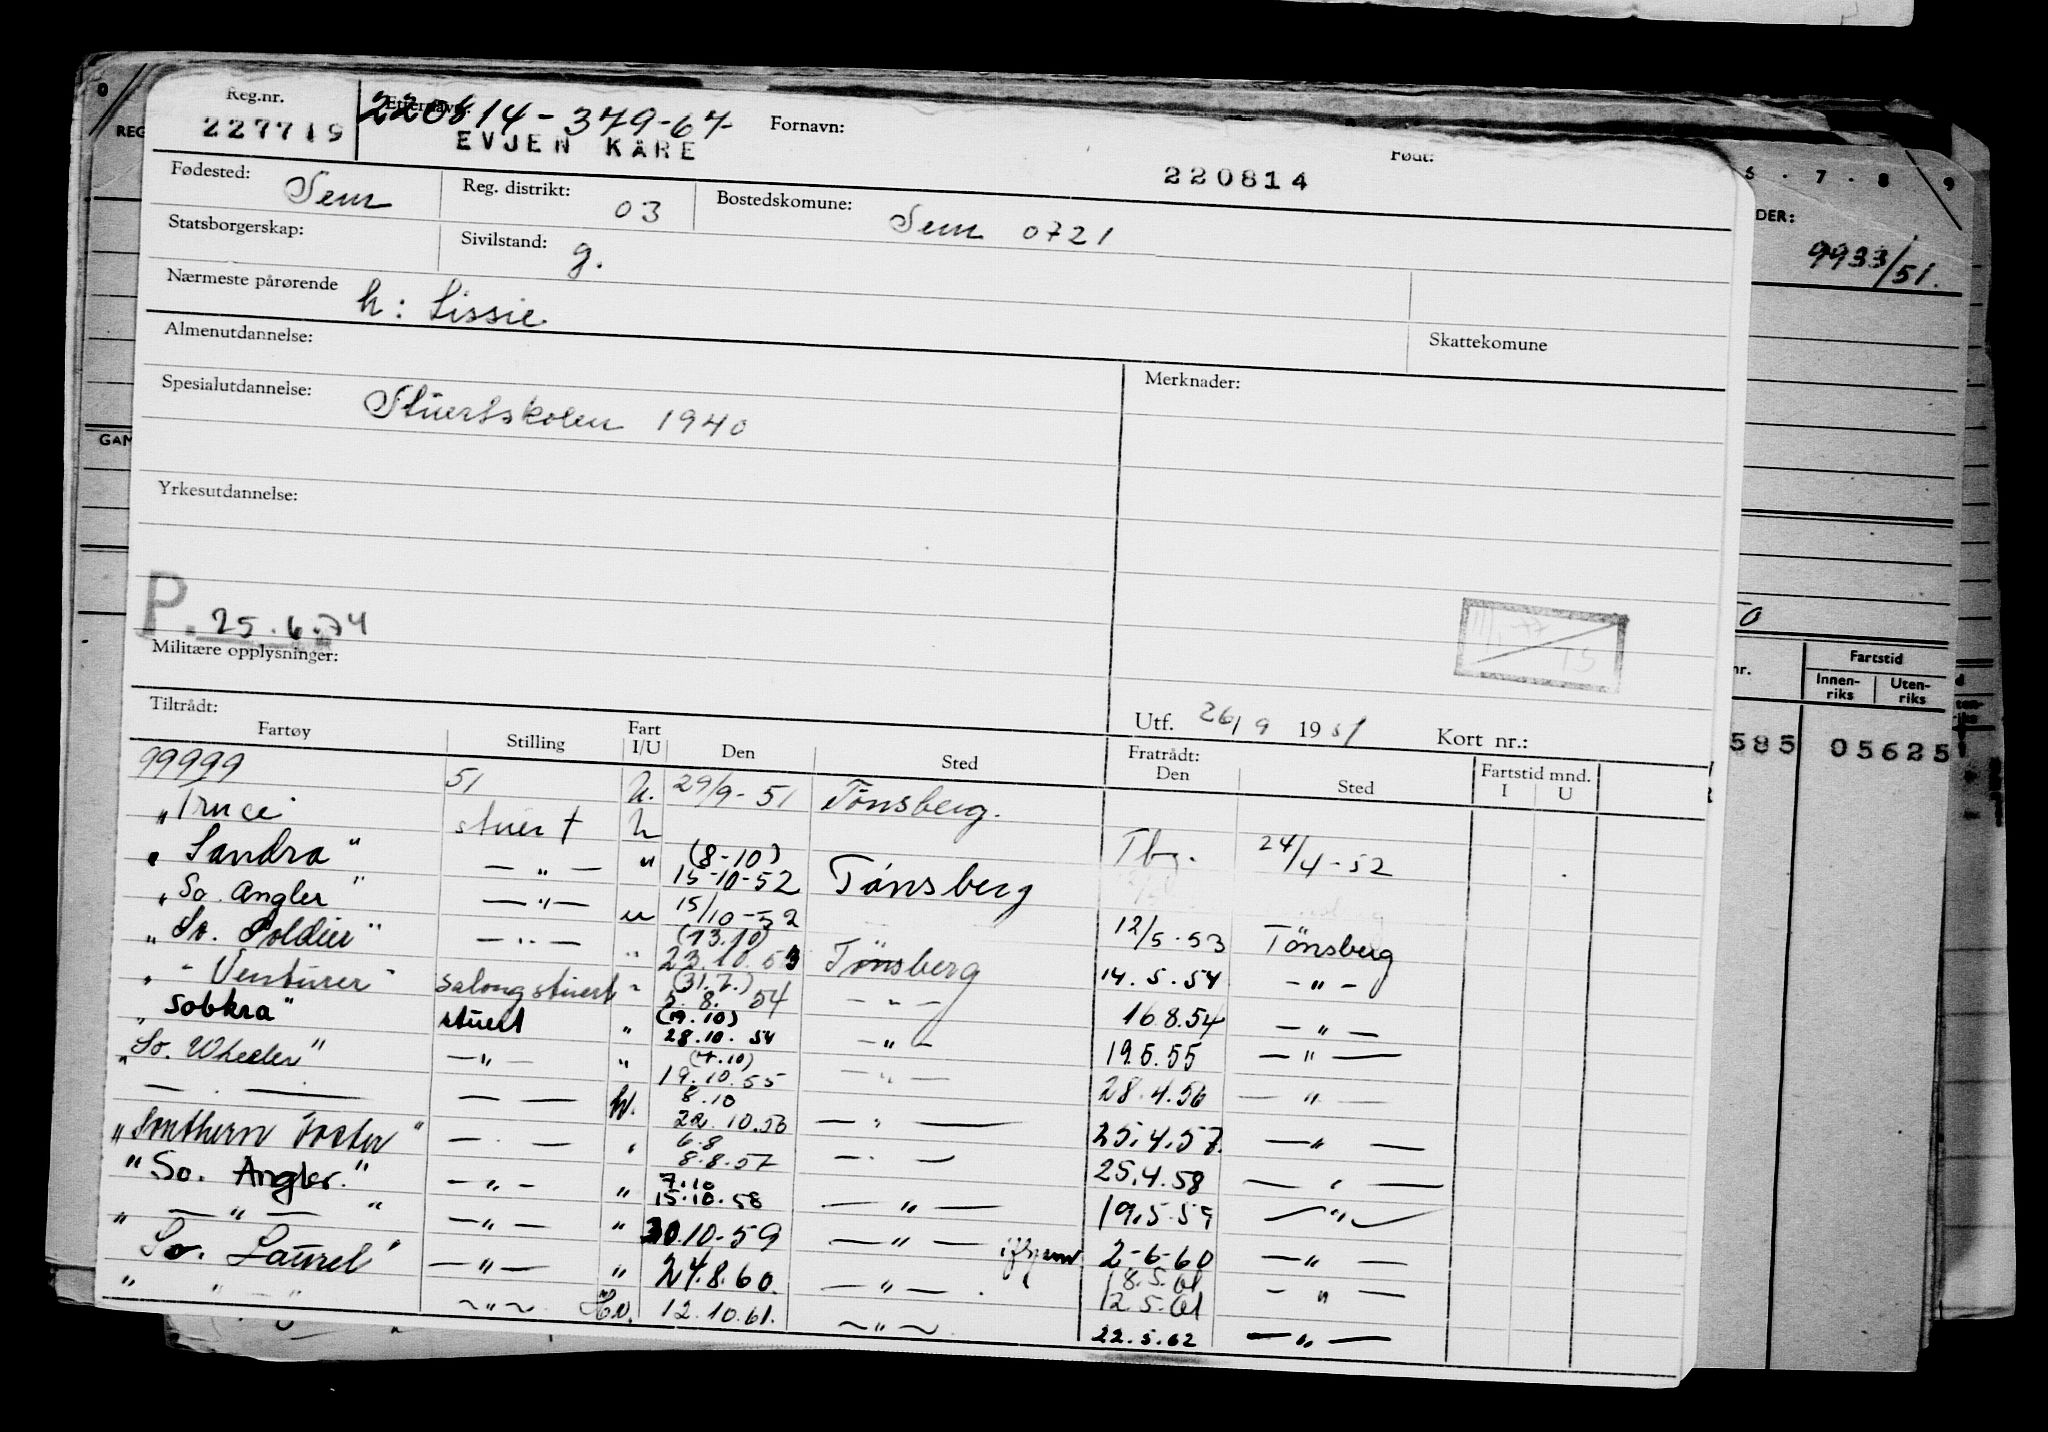 Reg.nr. Etternavn: Fornavn: Født:
227719 220814-379-67- EVJEN KÅRE 220814
Fødested: Sem Reg. distrikt: 03 Bostedskomune: Sem 0721
Statsborgerskap: Sivilstand: g.
Nærmeste pårørende h: Lissie
Almenutdannelse: Skattekomune
Spesialutdannelse: Stuertskolen 1940 Merknader:
Yrkesutdannelse:
P. 25.6.74
Militære opplysninger:
Utf. 26/9 1951 Kort nr.:
Tiltrådt: Fratrådt:
Fartøy Stilling Fart I/U Den Sted Den Sted Fartstid mnd. I U
99999 51 U. 29/9-51 Tönsberg.
"Truce" stuert U Tbg. 24/4-52
"Sandra" — " — " (8-10) 15-10-52 Tønsberg
"So. Angler" — " — u 15/10-52 12/5-53 Tönsberg
"So. Soldier" — " — " (13.10) 23.10.53 Tönsberg 14.5.54 — " —
" - Venturer" salongstuert " (31.7.) 5.8.54 — " — 16.8.54 — " —
"Sobkra" stuert " (19.10) 28.10.54 — " — 19.5.55 — " —
"So. Wheeler" — " — " (7.10) 19.10.55 — " — 28.4.56 — " —
— . — — — W. 8.10 22.10.53 — " — 25.4.57. — " —
"Southern Foster" — . — " 6.8 8.8.57 — . — 25.4.58 — " —
"So. Angler." — " — " 7.10 15.10.58 — " — 19.5.59 — " —
" — " — " — " — " 30.10-59 — " — 2-6-60 — " —
"So. Laurel" — " — " 24.8.60. — " — . 18.5.61 12.5.61 — " —
" " — " — " — 12.10.61. — " — 22.5.62 — " —
6 . 7 . 8 9
DER:
9933/51.
GAM
nr. Fartstid
Innen-riks Uten-riks
585 05625